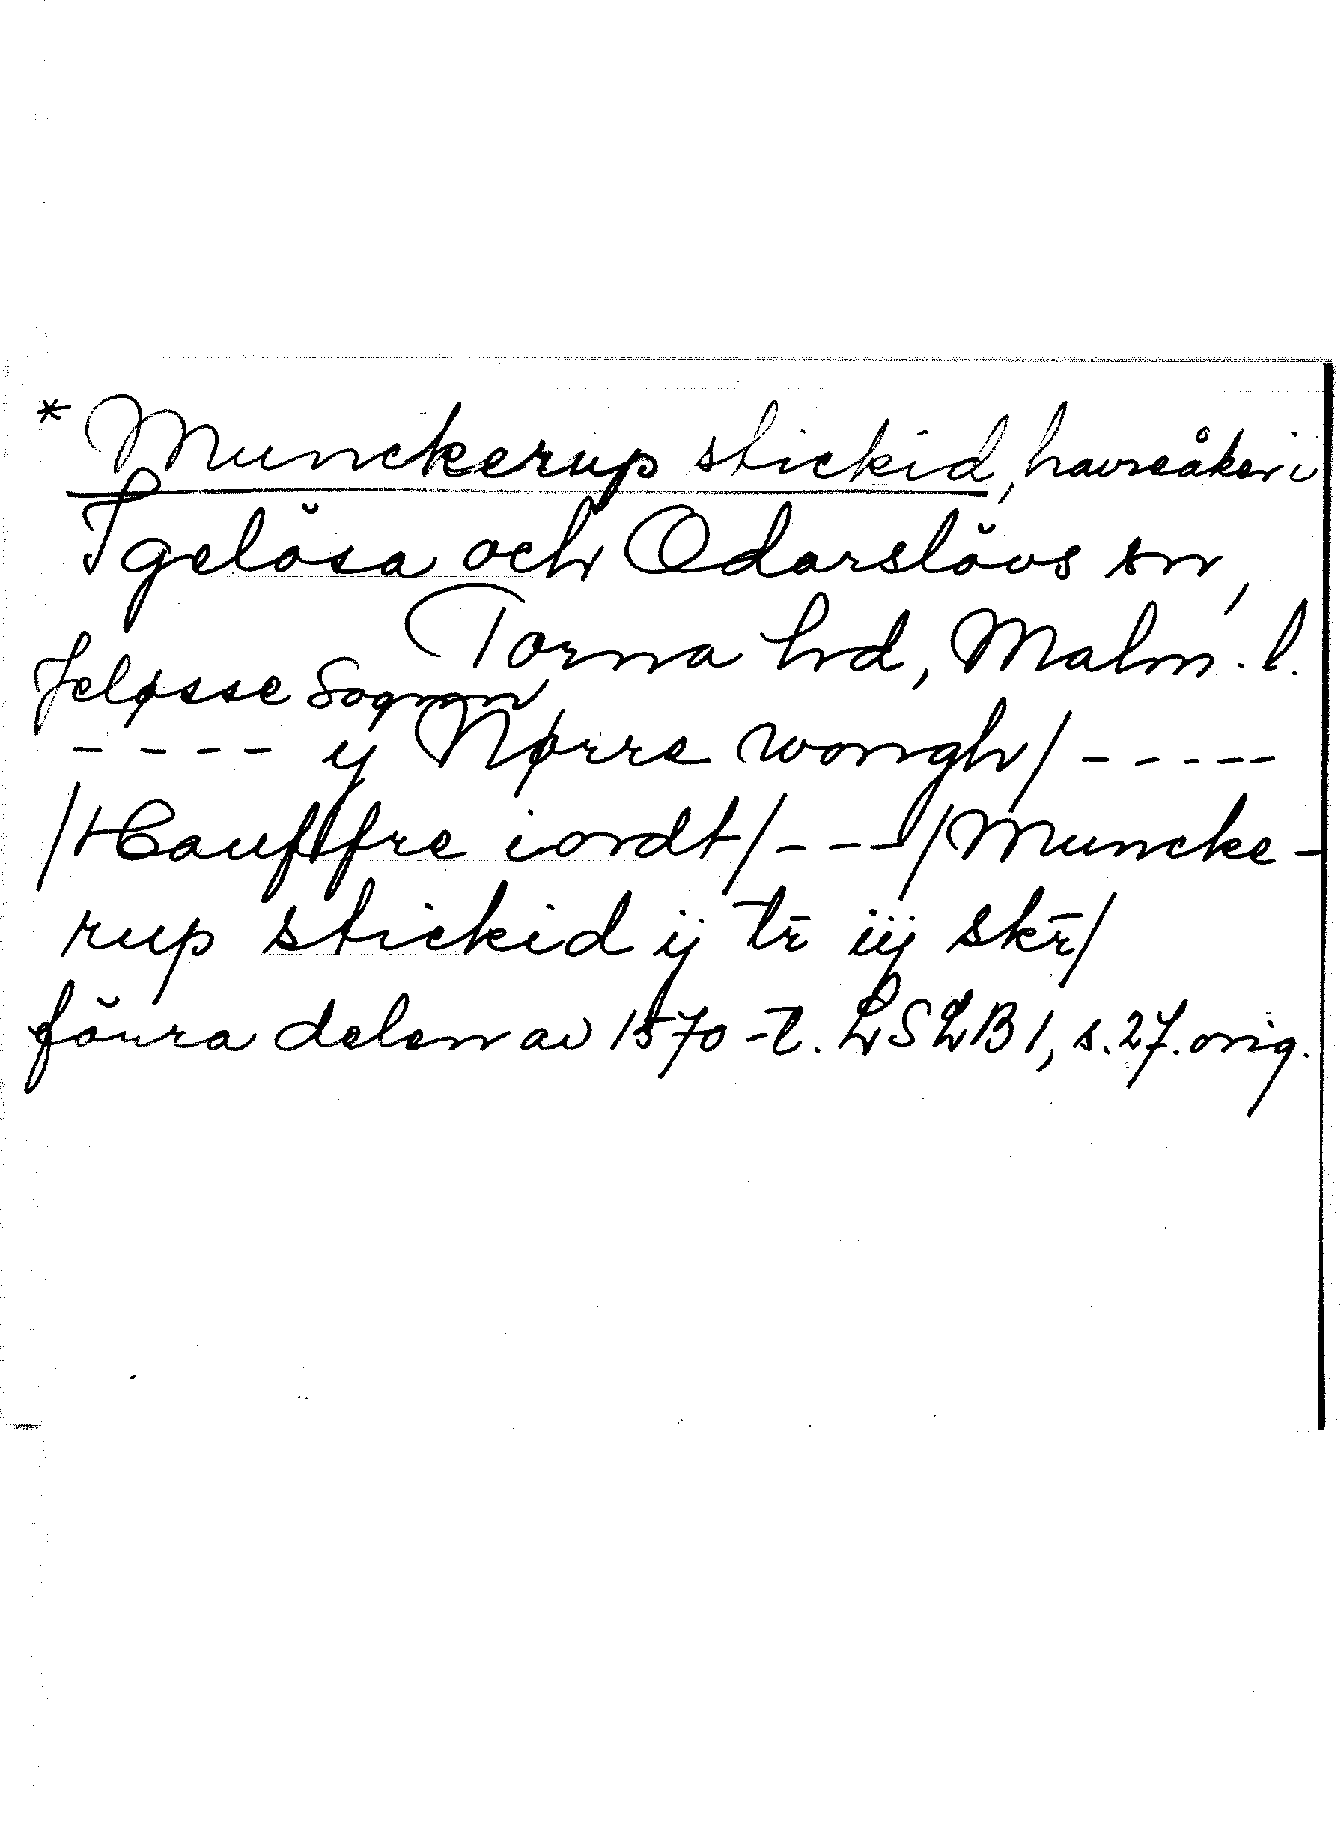 * Munckerup stickid, havreåker i
Igelösa och Odarslövs sn,
Torna hd, Malm. l.
Jeløsse Sognn
---- y Nørre wongh/-----
/Haufffre iordt/---/Muncke-
rup stickid ij tr̄ iij skr̄/
förra delen av 1570-t. LSLB1, s. 27. orig.